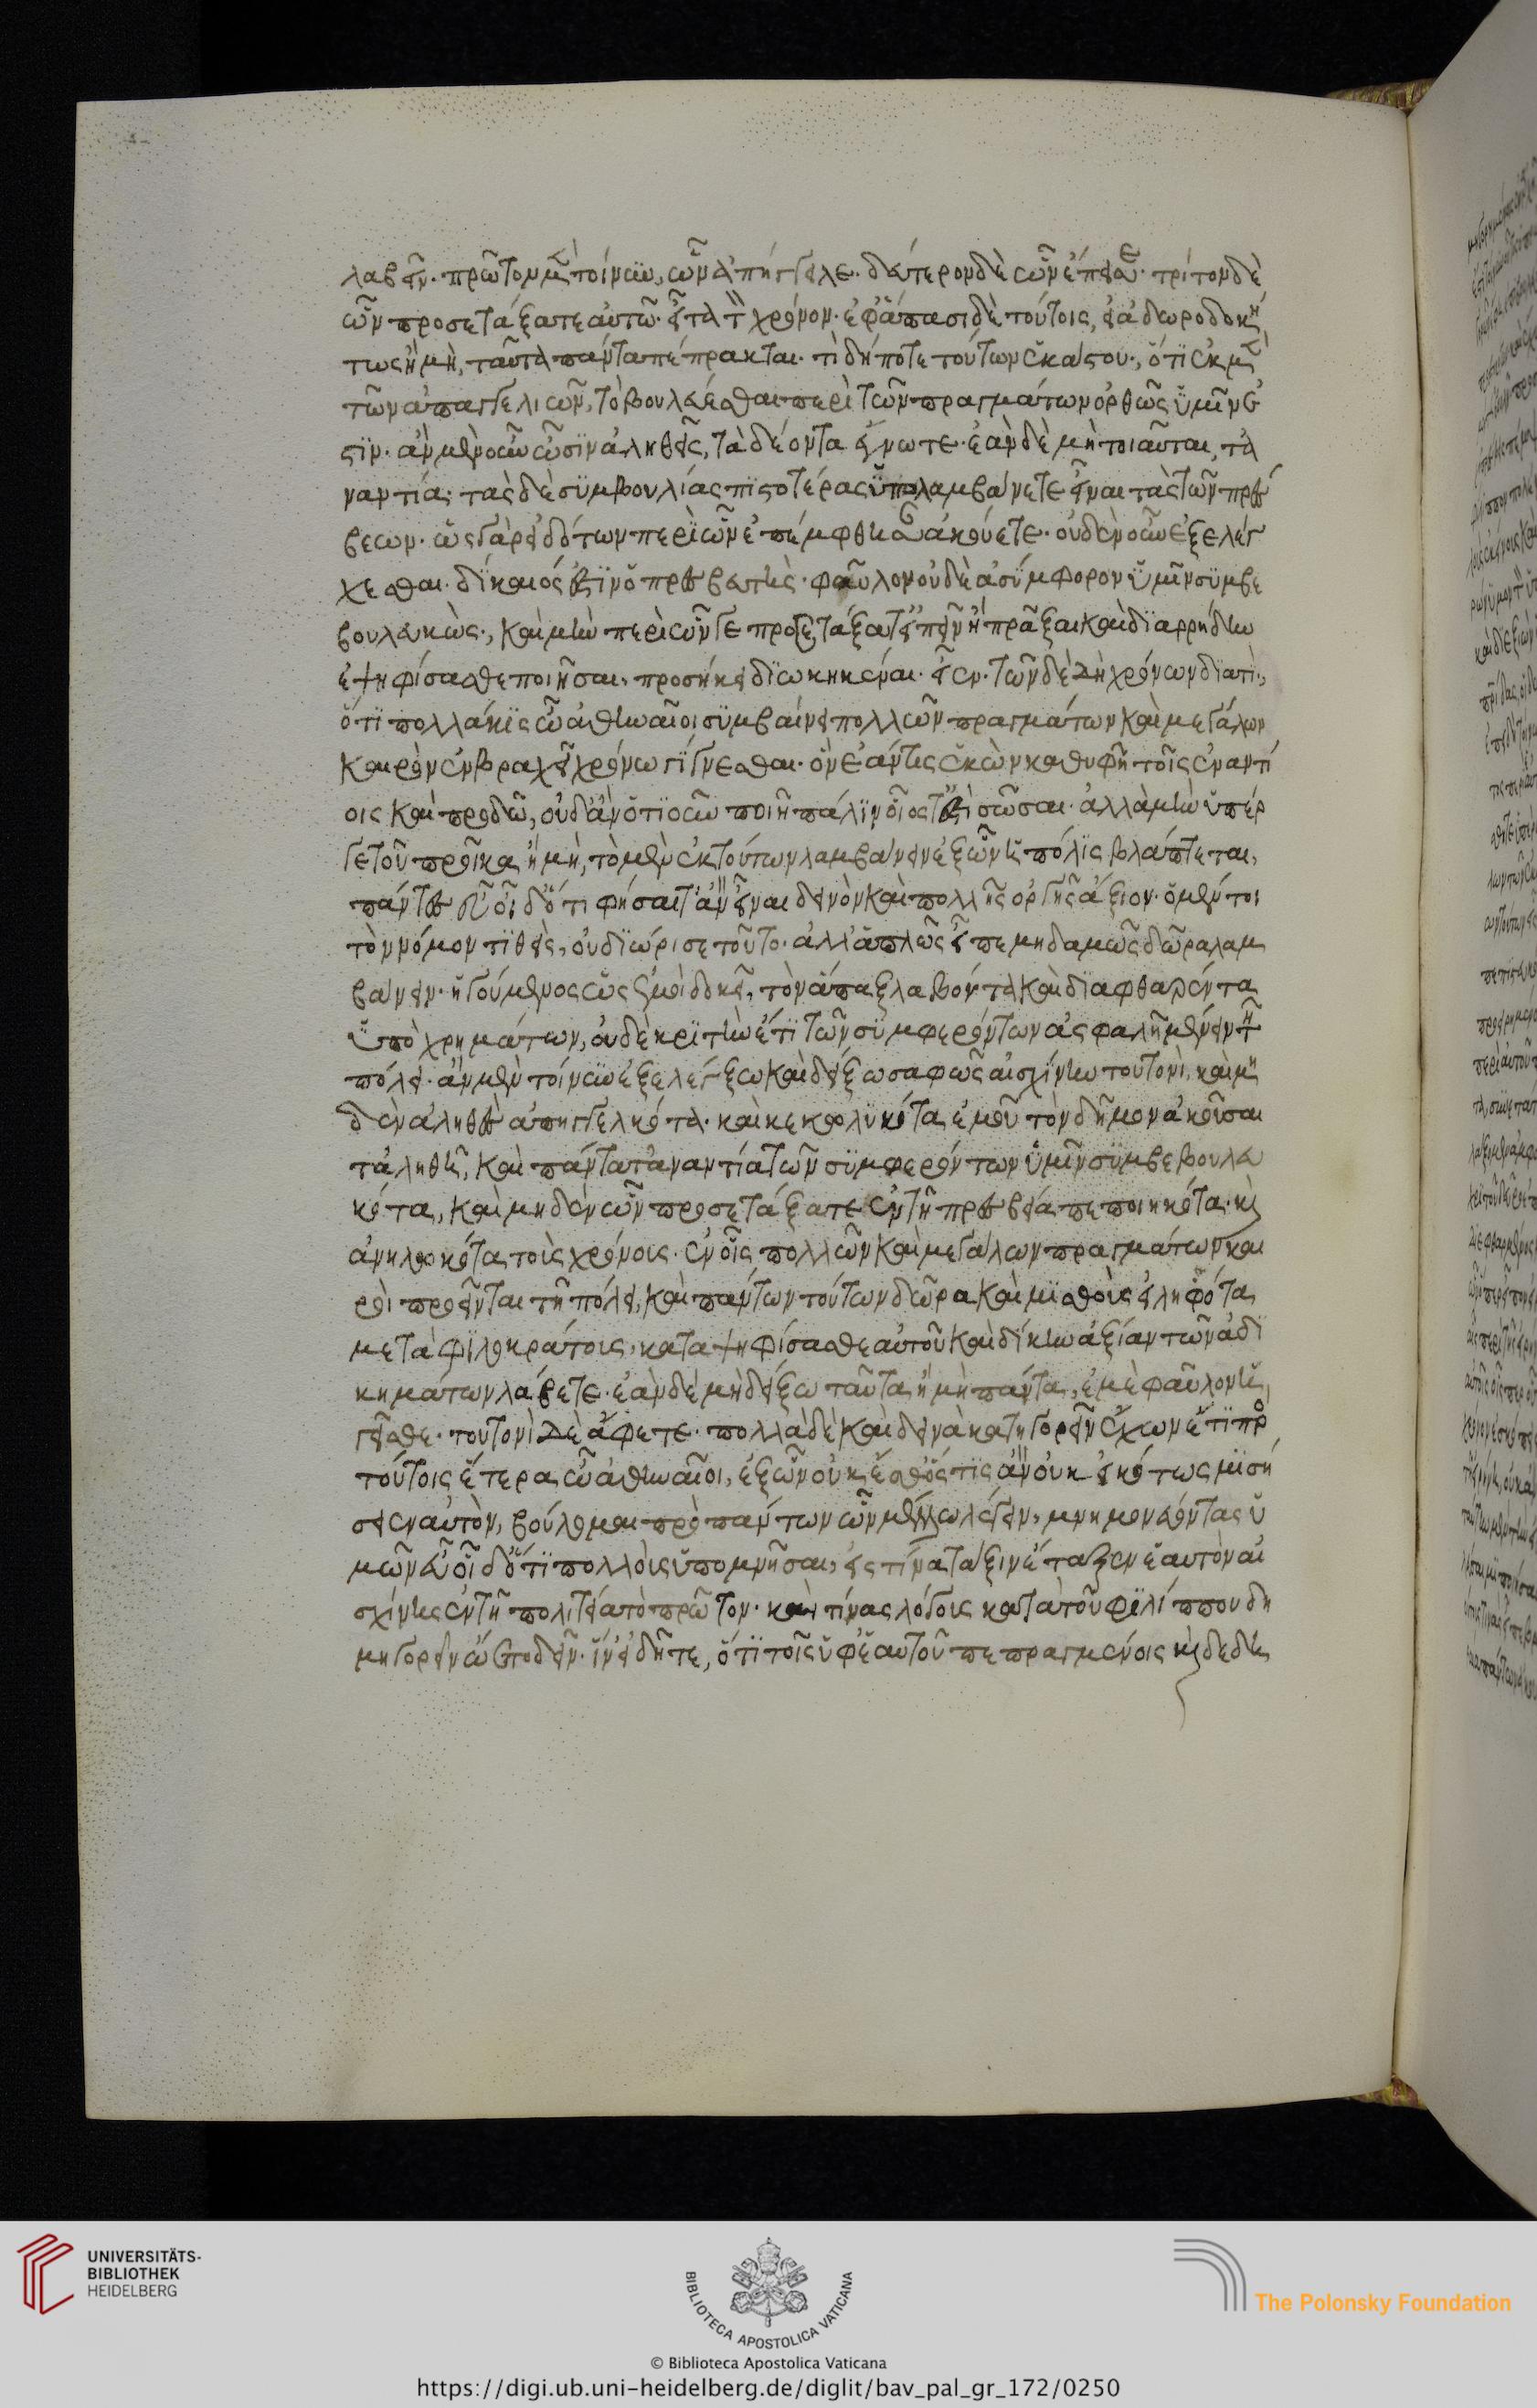 λαβεῖν. πρῶτον μὲν τοίνυν, ὧν ἀπήγγειλε. δεύτερον δὲ ὧν ἔπεισε. τρίτον δὲ
ὧν προσετάξατε αὐτῶ. εἶτα τῶν χρόνων. ἐφ' ἅπασι δὲ τούτοις, εἰ ἀδωροδοκή
τως ἢ μὴ, ταῦτα πάντα πέπρακται. τί δήποτε τούτων ἑκάστου; ὅτι ἐκ μὲν
τῶν ἀπαγγελιῶν, τὸ βουλεύεσθαι περὶ τῶν πραγμάτων ὀρθῶς ὑμῖν ἐ
στιν. ἂν μὲν οὖν ὦσιν ἀληθεῖς, τὰ δέοντα ἔγνωτε. ἐὰν δὲ μὴ τοιαῦται, τἀ
ναντία. τὰς δὲ συμβουλίας πιστοτέρας ὑπολαμβάνετε εἶναι τὰς τῶν πρέσ
βεων. ὡς γὰρ εἰδότων περὶ ὧν ἐπέμφθησαν ἀκούετε. οὐδὲν οὖν ἐξελέγ
χεσθαι δίκαιός ἐστιν ὁ πρεσβευτὴς φαῦλον οὐδὲ ἀσύμφορον ὑμῖν συμβε
βουλευκώς. καὶ μὴν περὶ ὧν γε προσετάξατ' εἰπεῖν ἢ πρᾶξαι καὶ διαρρήδην
ἐψηφίσασθε ποιῆσαι, προσήκει διωκηκέναι. εἶεν. τῶν δὲ δὴ χρόνων διατί;
ὅτι πολλάκις ὦ ἀθηναῖοι συμβαίνει πολλῶν πραγμάτων καὶ μεγάλων
καιρὸν ἐν βραχεῖ χρόνω γίγνεσθαι. ὃν ἐάν τις ἑκὼν καθυφῆ τοῖς ἐναντί
οις καὶ προδῶ, οὐδ' ἂν ὁτιοῦν ποιῆ πάλιν οἷός τ' ἐστὶ σῶσαι. ἀλλὰ μὴν ὑπέρ
γε τοῦ προῖκα ἢ μὴ, τὸ μὲν ἐκ τούτων λαμβάνειν ἐξ ὧν ἡ πόλις βλάπτεται,
πάντες εὖ οἶδ' ὅτι φήσαιτ' ἂν εἶναι δεινὸν καὶ πολλῆς ὀργῆς ἄξιον. ὁ μέντοι
τὸν νόμον τιθεὶς, οὐ διώρισε τοῦτο. ἀλλ' ἁπλῶς εἶπε μηδαμῶς δῶρα λαμ
βάνειν. ἡγούμενος ὡς ἐμοὶ δοκεῖ, τὸν ἅπαξ λαβόντα καὶ διαφθαρέντα
ὑπὸ χρημάτων, οὐδὲ κριτὴν ἔτι τῶν συμφερόντων ἀσφαλῆ μένειν τῆ
πόλει. ἂν μὲν τοίνυν ἐξελέγξω καὶ δείξω σαφῶς αἰσχίνην τουτονὶ, καὶ μη
δὲν ἀληθὲς ἀπηγγελκότα. καὶ κεκωλυκότα ἐμοῦ τὸν δῆμον ἀκοῦσαι
τἀληθῆ, καὶ πάντα τἀναντία τῶν συμφερόντων ὑμῖν συμβεβουλευ
κότα, καὶ μηδὲν ὧν προσετάξατε ἐν τῆ πρεσβεία πεποιηκότα. καὶ
ἀνηλωκότα τοὺς χρόνους. ἐν οἷς πολλῶν καὶ μεγάλων πραγμάτων και
ροὶ προεῖνται τῆ πόλει, καὶ πάντων τούτων δῶρα καὶ μισθοὺς εἰληφότα
μετὰ φιλοκράτους, καταψηφίσασθε αὐτοῦ καὶ δίκην ἀξίαν τῶν ἀδι
κημάτων λάβετε. ἐὰν δὲ μὴ δείξω ταῦτα ἢ μὴ πάντα, ἐμὲ φαῦλον ἡ
γεῖσθε. τουτονὶ δὲ ἄφετε. πολλὰ δὲ καὶ δεινὰ κατηγορεῖν ἔχων ἔτι πρὸς
τούτοις ἕτερα ὦ ἀθηναῖοι, ἐξ ὧν οὐκ ἔσθ' ὅστις ἂν οὐκ εἰκότως μισή
σειεν αὐτὸν, βούλομαι πρὸ πάντων ὧν μέλλω λέγειν, μνημονεύοντας ὑ
μῶν εὖ οἶδ' ὅτι πολλοὺς ὑπομνῆσαι, εἰς τίνα τάξιν ἔταξεν ἑαυτὸν αἰ
σχίνης ἐν τῆ πολιτεία τὸ πρῶτον. καὶ τίνας λόγους κατὰ τοῦ φιλίππου δη
μηγορεῖν ὤετο δεῖν. ἵν' εἰδῆτε, ὅτι τοῖς ὑφ' ἑαυτοῦ πεπραγμένοις καὶ δεδη
UNIVERSITÄTS-
BIBLIOTHEK
HEIDELBERG
BIBLIOTECA APOSTOLICA VATICANA
The Polonsky Foundation
© Biblioteca Apostolica Vaticana
https://digi.ub.uni-heidelberg.de/diglit/bav_pal_gr_172/0250